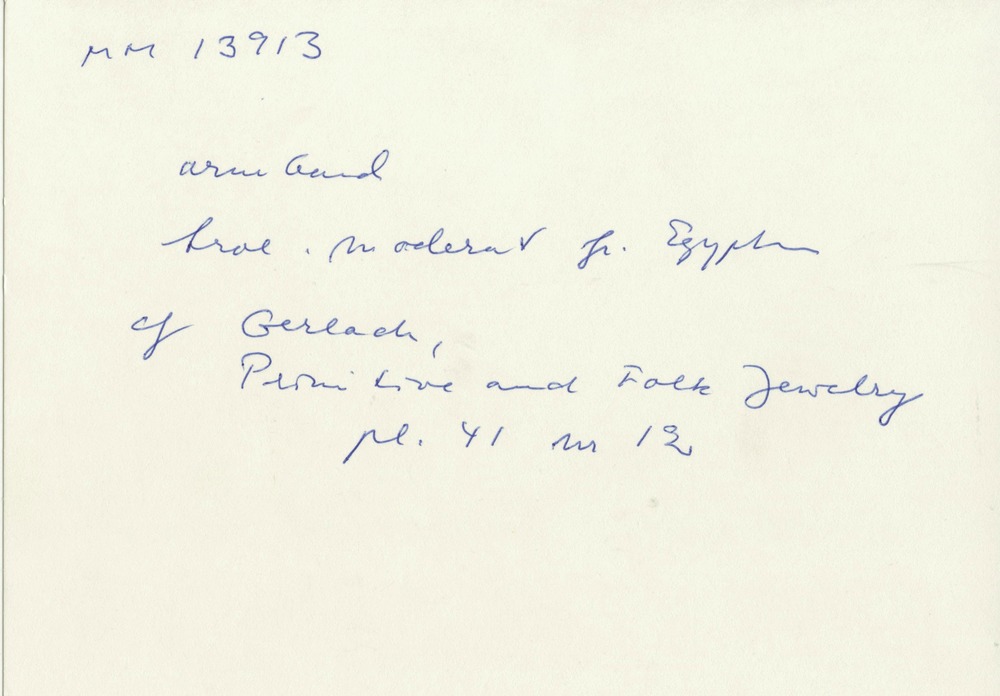 MM 13913
armband
trol. modernt fr. Egypten
cf Gerlach,
Primitive and Folk Jewelry
pl. 41 nr 12